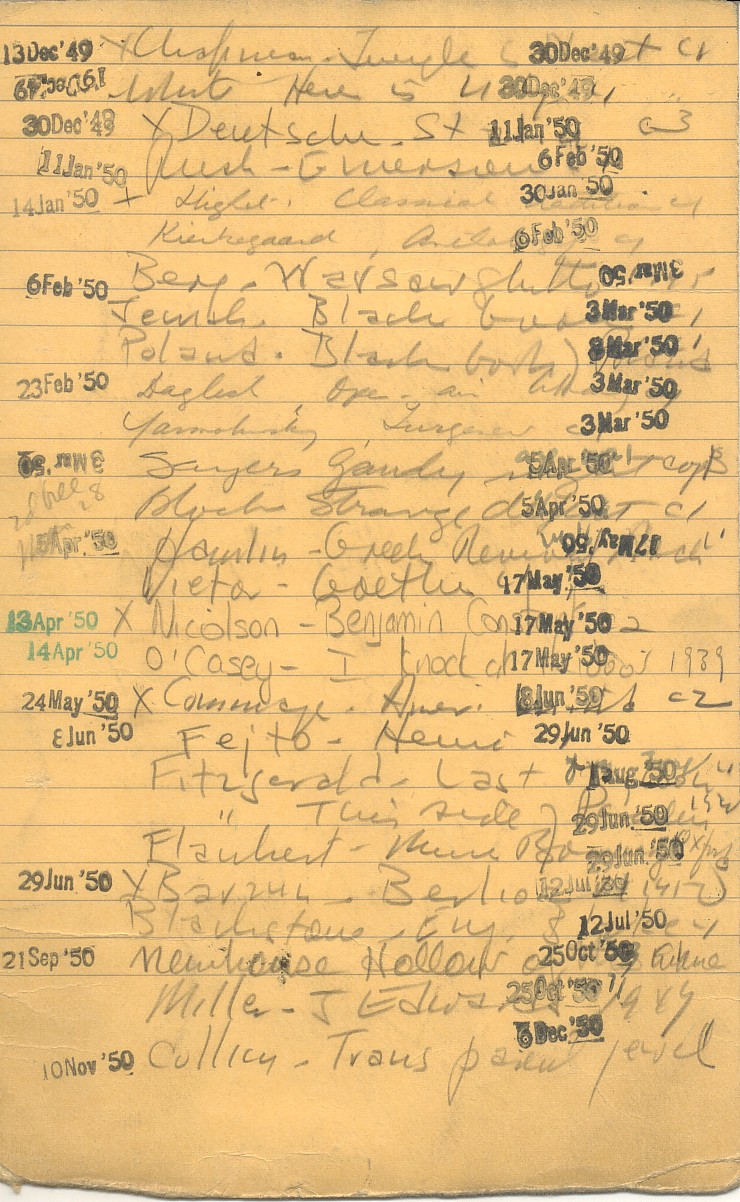 13 Dec '49 X Chapman - Jungle is 30 Dec '49 c1
19 Dec '49 White Here is 30 Dec '49
30 Dec '49 X Deutscher. St 11 Jan '50 c3
11 Jan '50 Rush - Emerson 6 Feb '50
14 Jan '50 X Highet. Classical 30 Jan '50 c1
Kierkegaard, 6 Feb '50
6 Feb '50 Berg - Warsaw ghetto 3 Mar '50
Jewish. Black book 3 Mar '50 c1
Poland. Black book) 3 Mar '50
23 Feb '50 Daglish Open-air 3 Mar '50
Yarmolinsky, Turgenev 3 Mar '50
3 Mar '50 Sayers Gaudy night 5 Apr '50 cop 3
Bloch Strange defeat 5 Apr '50 c1
5 Apr '50 Hamlin - Greek Revival 17 May '50
Vietor - Goethe 17 May '50
13 Apr '50 X Nicolson - Benjamin Constant 17 May '50 2
14 Apr '50 O'Casey - I knock at 17 May '50 1939
24 May '50 X Commager. Ameri 8 Jun '50 c2
8 Jun '50 Fejto - Heine 29 Jun '50
Fitzgerald. Last 1 Aug '50
" This side 29 Jun '50
Flaubert - Mme Bo 29 Jun '50
29 Jun '50 X Barzun. Berlioz 12 Jul '50
Blackstone. Eng. 12 Jul '50
21 Sep '50 Newhouse Hollow of 25 Oct '50
Miller - J Edwards 25 Oct '50
6 Dec '50
10 Nov '50 Collin - Transparent jewel